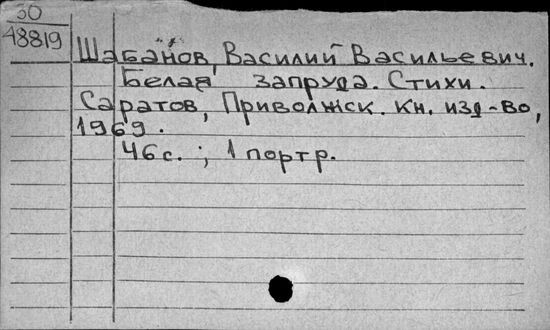 30
48819
Шабанов, Василий Васильевич.
Белая запруда. Стихи.
Саратов, Приволжск. кн. изд-во,
1969.
46с. ; 1 портр.